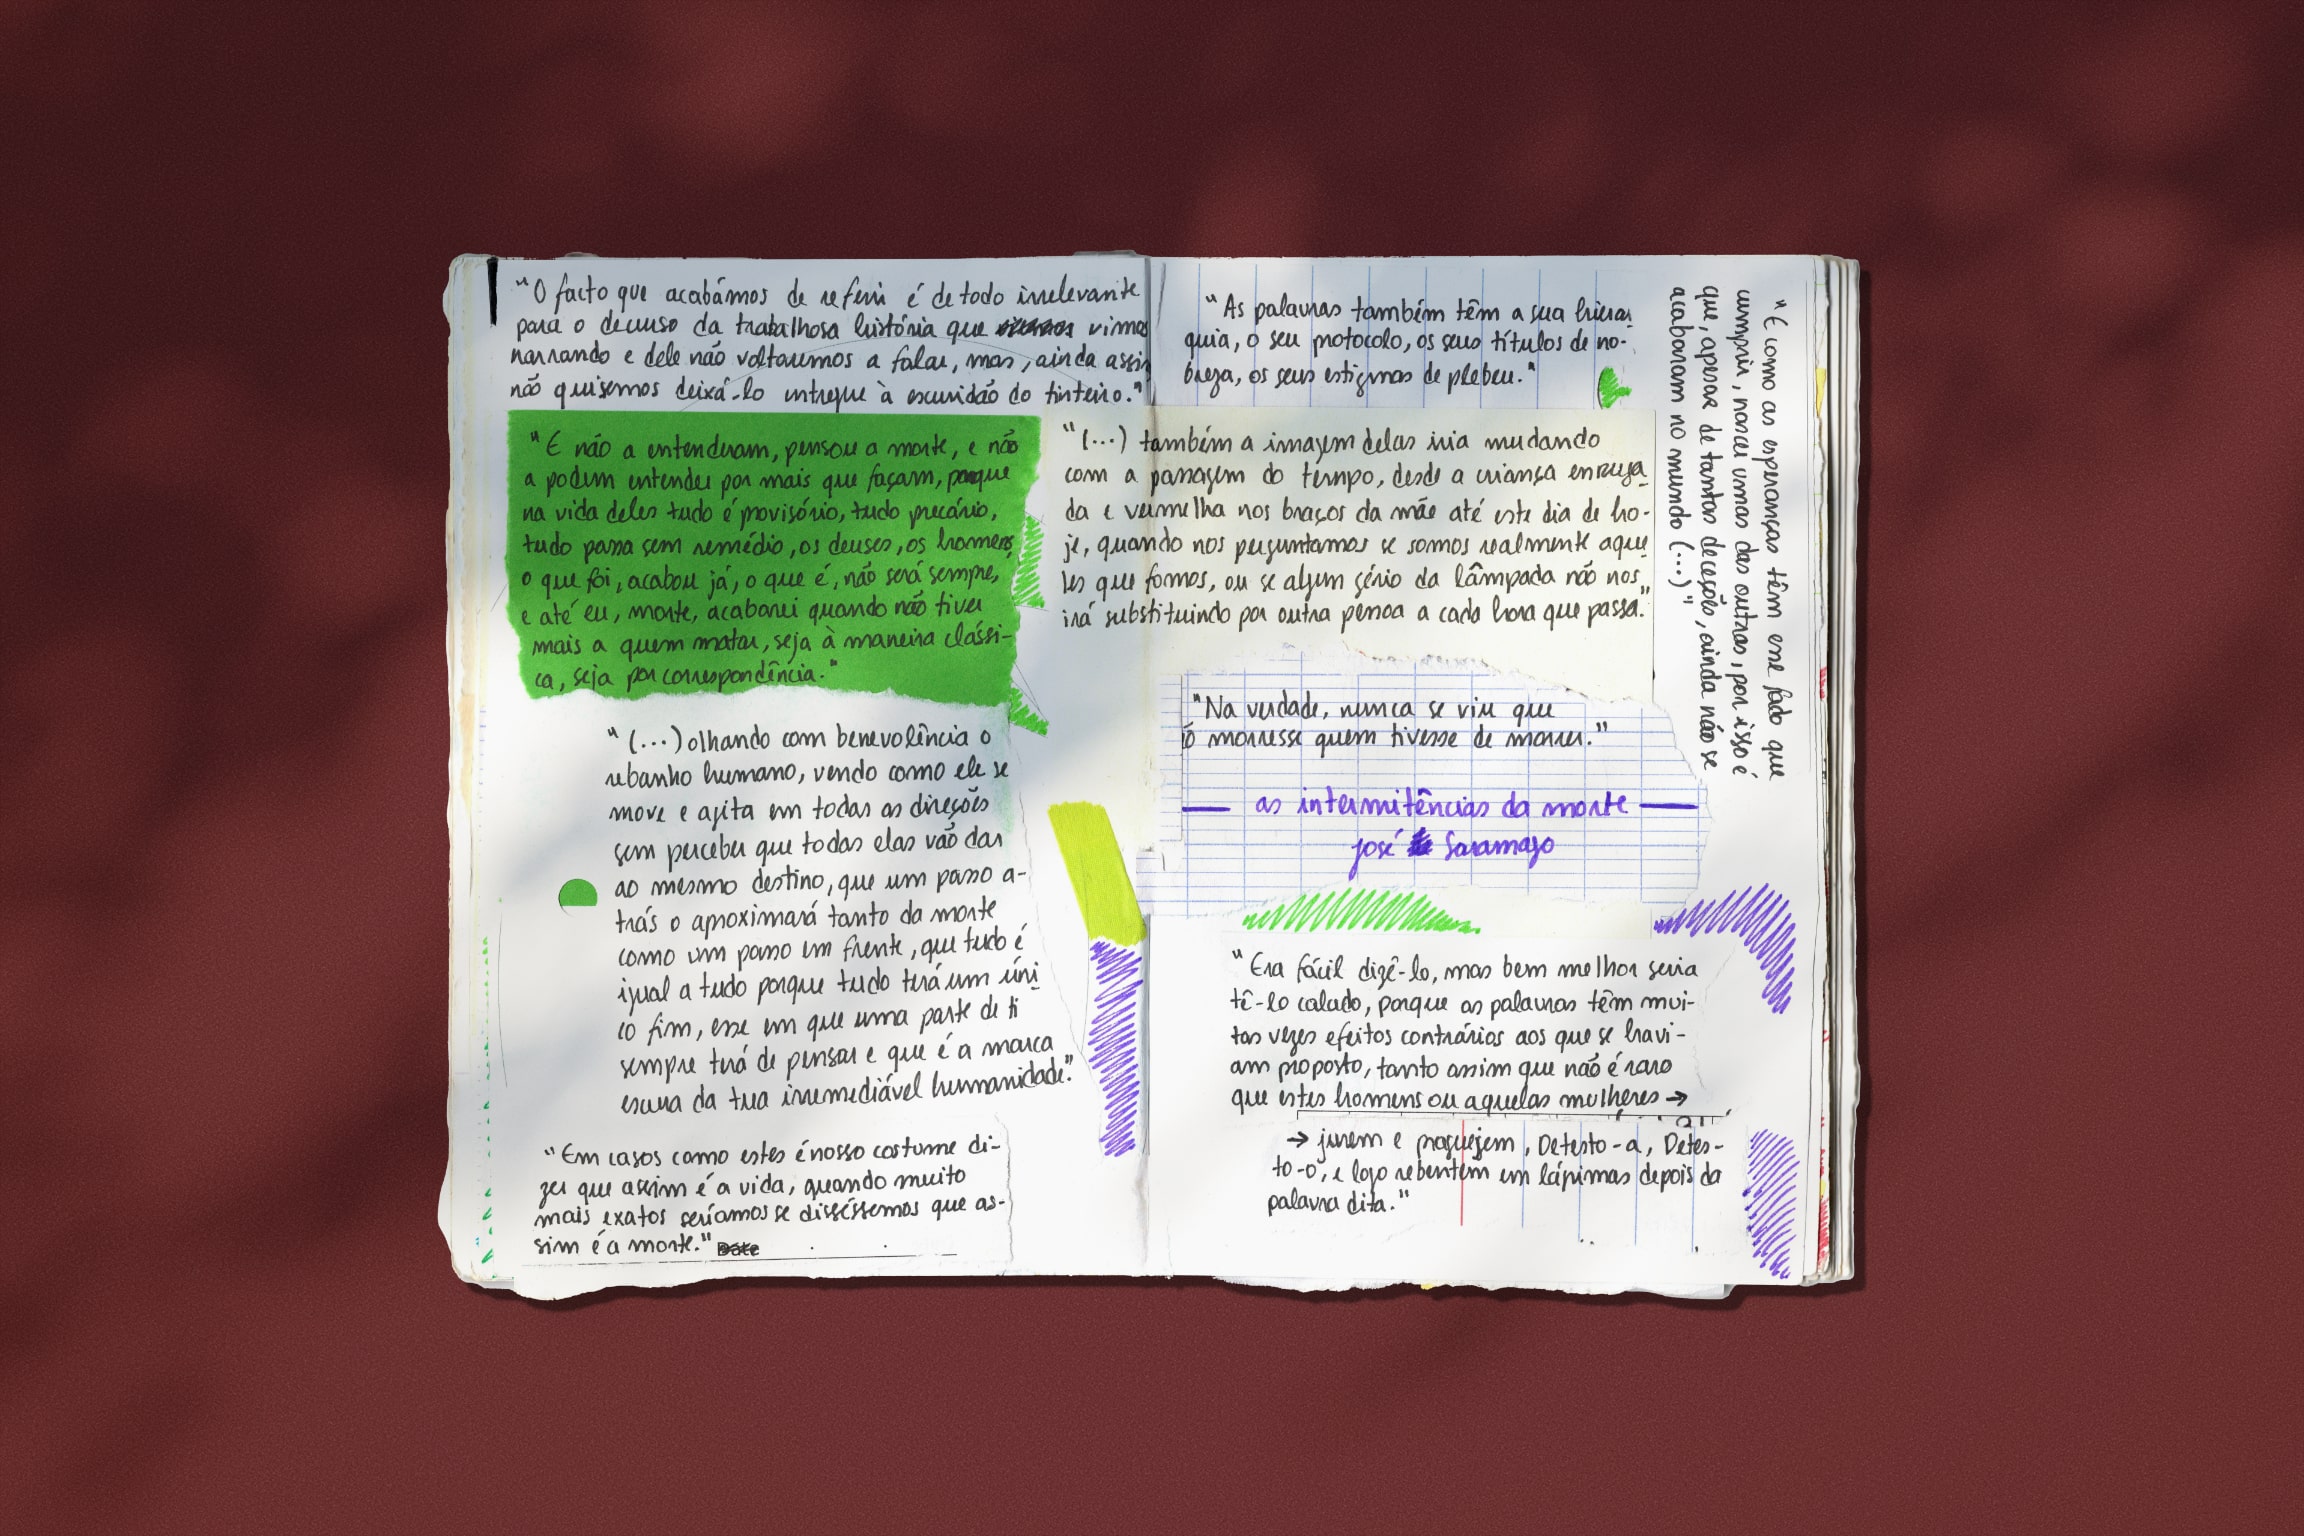 "O facto que acabámos de referir é de todo irrelevante
para o decurso da trabalhosa história que vimos
narrando e dele não voltaremos a falar, mas, ainda assim
não quisemos deixá-lo entregue à escuridão do tinteiro."
"E não a entenderam, pensou a morte, e não
a podem entender por mais que façam, porque
na vida deles tudo é provisório, tudo precário,
tudo passa sem remédio, os deuses, os homens,
o que foi, acabou já, o que é, não será sempre,
e até eu, morte, acabarei quando não tiver
mais a quem matar, seja à maneira clássi-
ca, seja por correspondência."
"(...) olhando com benevolência o
rebanho humano, vendo como ele se
move e agita em todas as direções
sem perceber que todas elas vão dar
ao mesmo destino, que um passo a-
trás o aproximará tanto da morte
como um passo em frente, que tudo é
igual a tudo porque tudo terá um úni-
co fim, esse em que uma parte de ti
sempre terá de pensar e que é a marca
escura da tua irremediável humanidade."
"Em casos como estes é nosso costume di-
zer que assim é a vida, quando muito
mais exatos seríamos se disséssemos que as-
sim é a morte." Date
"As palavras também têm a sua hierar-
quia, o seu protocolo, os seus títulos de no-
breza, os seus estigmas de plebeu."
"(...) também a imagem delas iria mudando
com a passagem do tempo, desde a criança enruga-
da e vermelha nos braços da mãe até este dia de ho-
je, quando nos perguntamos se somos realmente aque-
les que fomos, ou se algum génio da lâmpada não nos
irá substituindo por outra pessoa a cada hora que passa."
"Na verdade, nunca se viu que
ñ morresse quem tivesse de morrer."
as intermitências da morte
josé Saramago
"Era fácil dizê-lo, mas bem melhor seria
tê-lo calado, porque as palavras têm mui-
tas vezes efeitos contrários aos que se havi-
am proposto, tanto assim que não é raro
que estes homens ou aquelas mulheres →
→ jurem e praguejem, Detesto-a, Detes-
to-o, e logo rebentem em lágrimas depois da
palavra dita."
"E como as esperanças têm esse fado que
cumprir, nascer umas das outras, por isso é
que, apesar de tantas deceções, ainda não se
acabaram no mundo (...)"